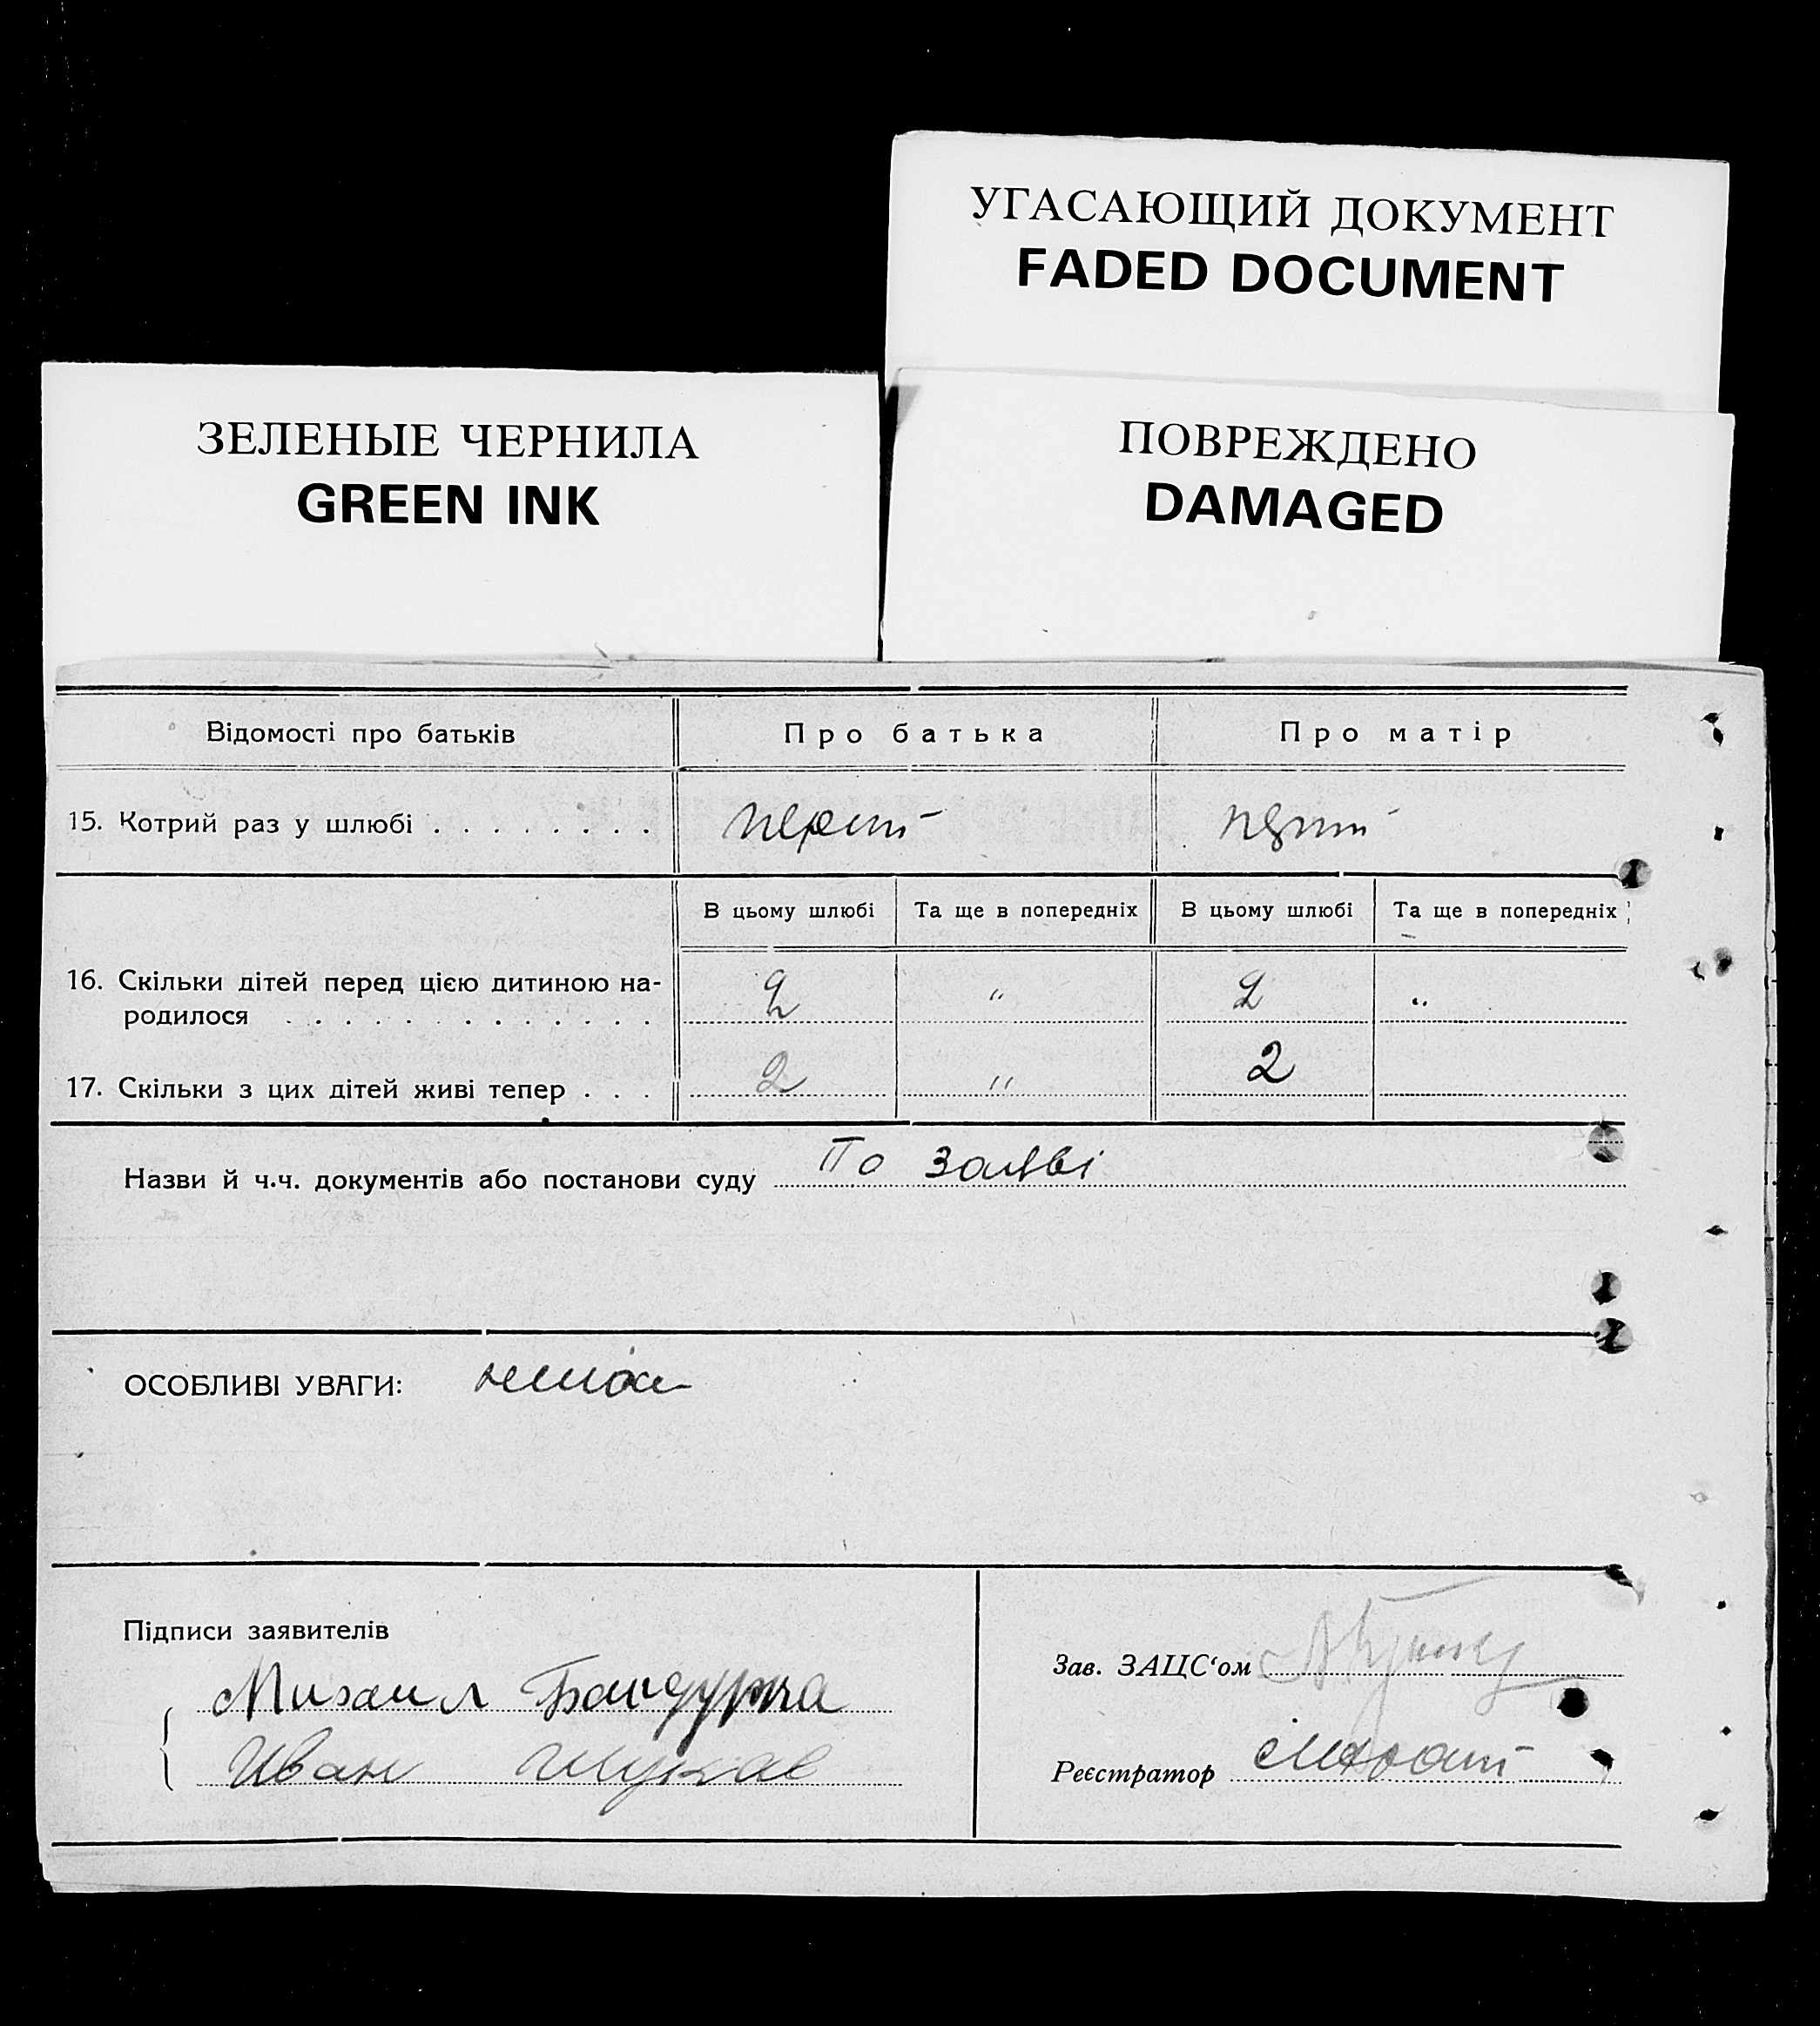 УГАСАЮЩИЙ ДОКУМЕНТ
FADED DOCUMENT
ЗЕЛЕНЫЕ ЧЕРНИЛА
GREEN INK
ПОВРЕЖДЕНО
DAMAGED
Відомості про батьків Про батька Про матір
15. Котрий раз у шлюбі . . . . . . . .
В цьому шлюбі Та ще в попередніх В цьому шлюбі Та ще в попередніх
16. Скільки дітей перед цією дитиною на-
родилося . . . . . . . . . . . . . 2 " 2 "
17. Скільки з цих дітей живі тепер . . . 2 " 2
Назви й ч.ч. документів або постанови суду По заяві
ОСОБЛИВІ УВАГИ: немає
Підписи заявителів
Михаил Бандурка
Иван
Зав. ЗАЦС‘ом
Реєстратор